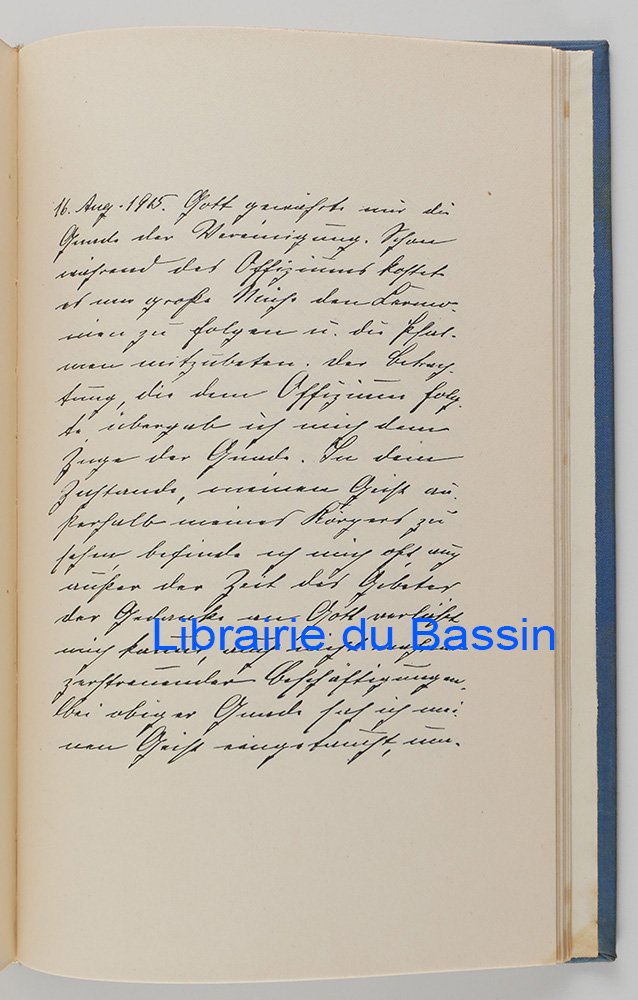 16. Aug. 1925. Gott gewährte mir die
Gnade der Vereinigung. Schon
während des Offiziums kostete
es mir große Mühe den Zeremo-
nien zu folgen u. die Psal-
men mitzubeten. Der Betrach-
tung, die dem Offizium folg-
te übergab ich mich dem
Zuge der Gnade. In dem
Zustande, meinen Geist au-
ßerhalb meines Körpers zu
sehen, befinde ich mich oft auch
außer der Zeit des Gebetes
der Gedanke an Gott verläßt
Librairie du Bassin
mich kaum, auch
zerstreuender Beschäftigungen.
Bei obiger Gnade sah ich mei-
nen Geist eingetaucht, um-